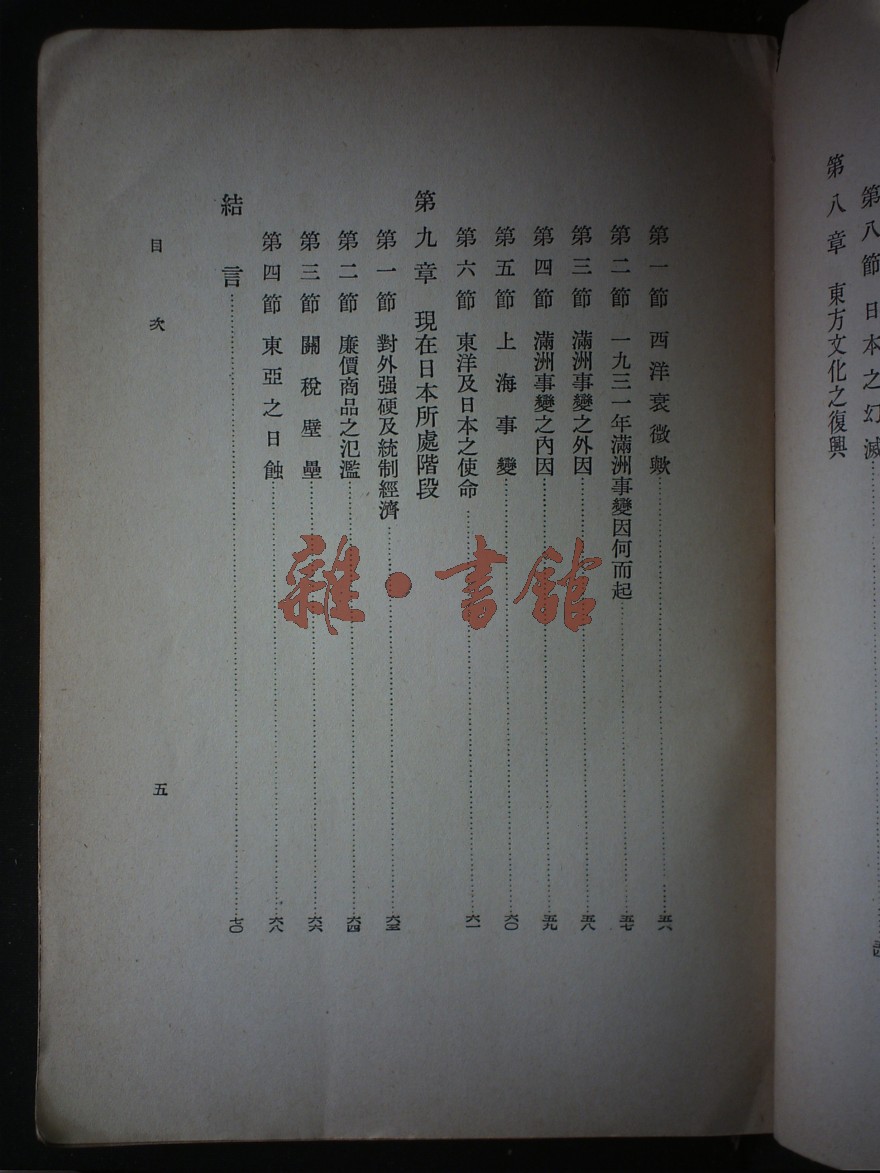 第八節 日本之幻滅
第八章 東方文化之復興
第一節 西洋衰微歟 五六
第二節 一九三一年滿洲事變因何而起 五七
第三節 滿洲事變之外因 五八
第四節 滿洲事變之內因 五九
第五節 上海事變 六〇
第六節 東洋及日本之使命 六一
第九章 現在日本所處階段
第一節 對外强硬及統制經濟 六三
第二節 廉價商品之氾濫 六四
第三節 關稅壁壘 六六
第四節 東亞之日蝕 六八
結言 七〇
目次
五
雜·書館